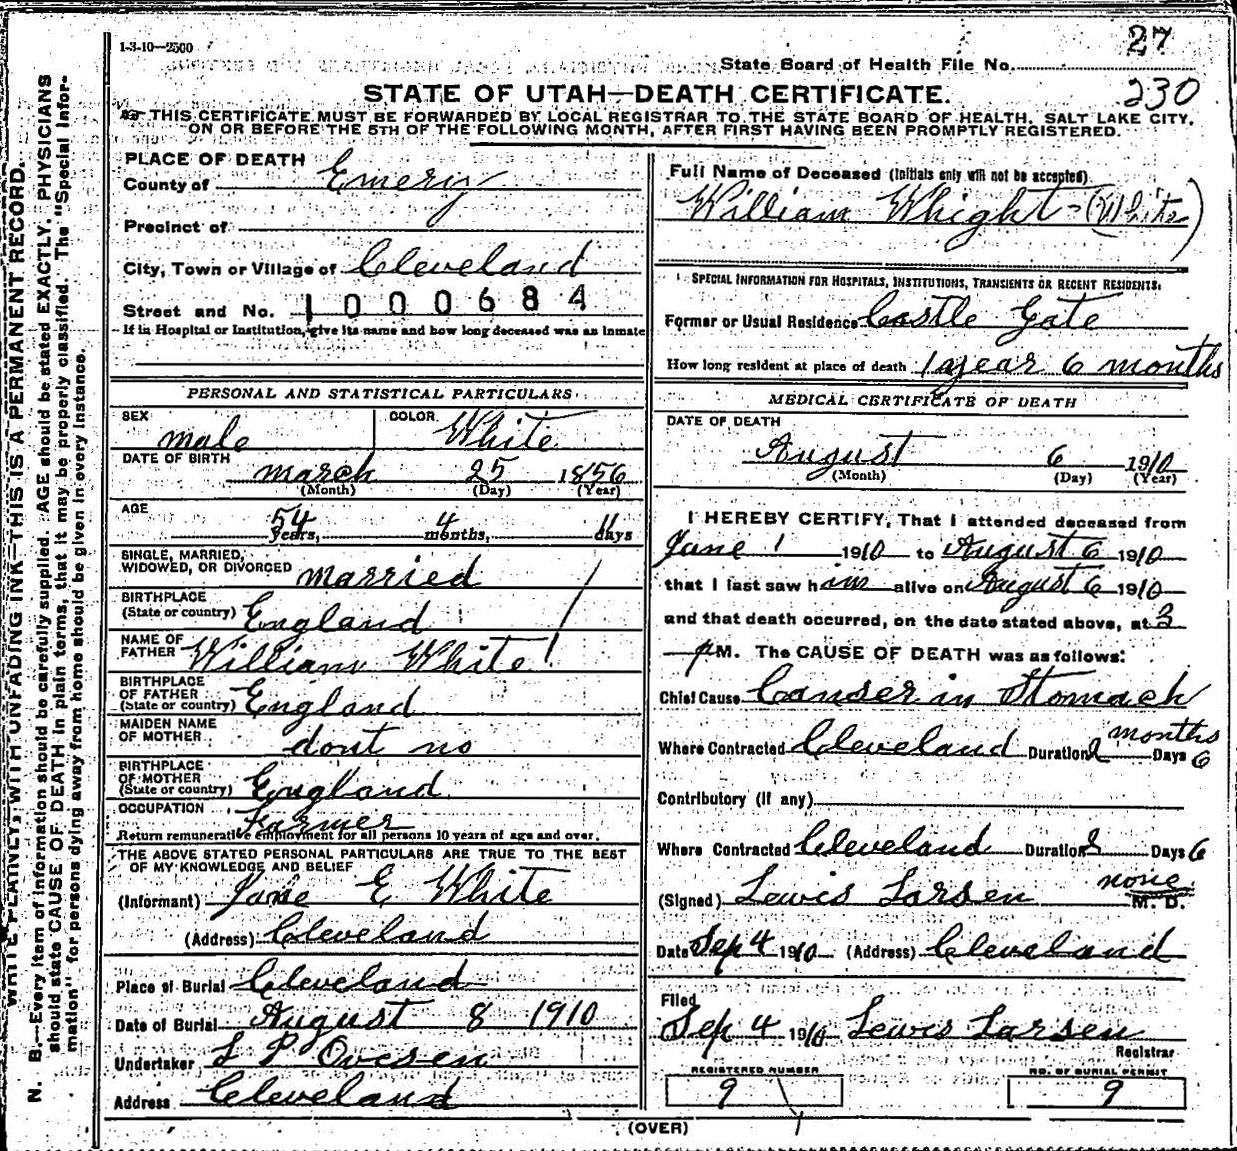 1-3-10—2500
27
State Board of Health File No.
STATE OF UTAH—DEATH CERTIFICATE.
230
THIS CERTIFICATE MUST BE FORWARDED BY LOCAL REGISTRAR TO THE STATE BOARD OF HEALTH, SALT LAKE CITY,
ON OR BEFORE THE 5TH OF THE FOLLOWING MONTH, AFTER FIRST HAVING BEEN PROMPTLY REGISTERED.
WRITE PLAINLY, WITH UNFADING INK—THIS IS A PERMANENT RECORD.
N. B.—Every item of information should be carefully supplied. AGE should be stated EXACTLY. PHYSICIANS
should state CAUSE OF DEATH in plain terms, that it may be properly classified. The "Special Infor-
mation" for persons dying away from home should be given in every instance.
PLACE OF DEATH
County of Emery
Precinct of
City, Town or Village of Cleveland
Street and No. 1000684
If in Hospital or Institution, give its name and how long deceased was an inmate
PERSONAL AND STATISTICAL PARTICULARS
SEX male COLOR White
DATE OF BIRTH march 25 1856
(Month) (Day) (Year)
AGE 54 Years, 4 months, 11 days
SINGLE, MARRIED,
WIDOWED, OR DIVORCED married
BIRTHPLACE
(State or country) England
NAME OF
FATHER William White
BIRTHPLACE
OF FATHER
(State or country) England
MAIDEN NAME
OF MOTHER dont no
BIRTHPLACE
OF MOTHER
(State or country) England
OCCUPATION Farmer
Return remunerative employment for all persons 10 years of age and over.
THE ABOVE STATED PERSONAL PARTICULARS ARE TRUE TO THE BEST
OF MY KNOWLEDGE AND BELIEF
(Informant) Jane E White
(Address) Cleveland
Place of Burial Cleveland
Date of Burial August 8 1910
Undertaker L P Ovesen
Address Cleveland
Full Name of Deceased (Initials only will not be accepted)
William Whight - (White)
SPECIAL INFORMATION FOR HOSPITALS, INSTITUTIONS, TRANSIENTS OR RECENT RESIDENTS:
Former or Usual Residence Castle Gate
How long resident at place of death 1 year 6 months
MEDICAL CERTIFICATE OF DEATH
DATE OF DEATH
August 6 1910
(Month) (Day) (Year)
I HEREBY CERTIFY, That I attended deceased from
June 1 1910 to August 6 1910
that I last saw him alive on August 6 1910
and that death occurred, on the date stated above, at 3
p M. The CAUSE OF DEATH was as follows:
Chief Cause Canser in Stomach
months
Where Contracted Cleveland Duration 2 Days 6
Contributory (if any)
Where Contracted Cleveland Duration 2 Days 6
none
(Signed) Lewis Larsen M. D.
Date Sep 4 1910 (Address) Cleveland
Filed
Sep 4 1910 Lewis Larsen
Registrar
REGISTERED NUMBER NO. OF BURIAL PERMIT
9 9
(OVER)